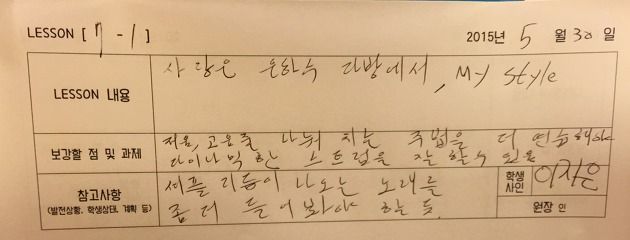 LESSON [ 7 - 1 ]
2015년 5 월 30 일
LESSON 내용
사랑은 은하수 다방에서, My style
보강할 점 및 과제
저음, 고음줄 나눠 치는 주법을 더 연습해야
다이나믹한 스트럼을 잘 할 수 있음
참고사항
(발전상황, 학생상태, 계획 등)
셔플 리듬이 나오는 노래를
좀 더 들어봐야 하는 듯.
학생
사인
이지은
원장 인